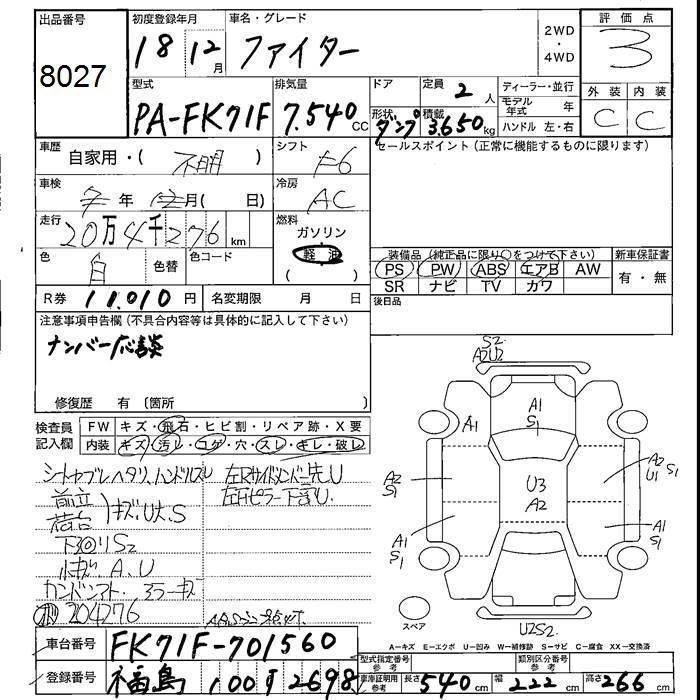 出品番号
8027
初度登録年月
18 12月
車名・グレード
ファイター
2WD
・
4WD
評価点
3
型式
PA-FK71F
排気量
7.540CC
ドア
形状
ダンプ
定員
2人
積載
3.650kg
ディーラー・並行
モデル年式 年
ハンドル 左・右
外装 内装
C C
車歴
自家用・( 不明 )
シフト
F6
セールスポイント(正常に機能するものに限ります)
車検
年 月( 日)
冷房
AC
走行
20万4千276km
燃料
ガソリン
軽油
( )
色
白
色替
色コード
装備品(純正品に限り○をつけて下さい)
新車保証書
PS PW ABS エアB AW
SR ナビ TV カワ
有・無
R券 11.010円
名変期限 月 日
後日品
注意事項申告欄(不具合内容等は具体的に記入して下さい)
ナンバー応談
修復歴 有(箇所 )
検査員記入欄
FW キズ・飛石・ヒビ割・リペア跡・X要
内装 キズ・汚れ・コゲ・穴・スレ・キレ・破レ
シートヤブレヘタリ、ハンドルスレ
前立
荷台
キズ、U大、S
下回りS2
小キズA、U
204276
左Rサイドメンバー先U
左Fピラー下部U.
S2
A2U2
A1
S1
A1
A2
S1
U3
A2
A2
U1 S1
A1
S1
A1
S1
スペア
U2S2.
A-キズ E-エクボ U-凹み W-補修跡 S-サビ C-腐食 XX-交換済
車台番号
FK71F-701560
登録番号
福島 100す2698
型式指定番号
参考
類別区分番号
参考
車庫証明用
参考
長さ 540cm
幅 222cm
高さ 266cm